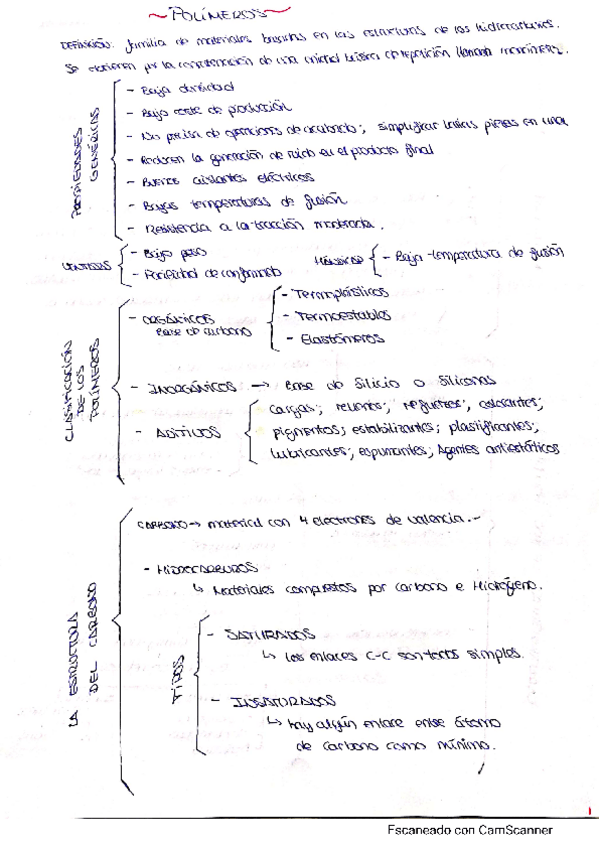 ~POLÍMEROS~
DEFINICIÓN: familia de materiales basados en las estructuras de los hidrocarburos.
Se obtienen por la concatenación de una unidad básica de repetición llamada monómero.
PROPIEDADES GENÉRICAS
- Baja densidad
- Bajo coste de producción
- No precisa de operaciones de acabado; simplificar varias piezas en una
- Reducen la generación de ruido en el producto final
- Buenos aislantes eléctricos
- Bajas temperaturas de fusión
- Resistencia a la tracción moderada.
VENTAJAS
- Bajo peso
- Facilidad de conformado
- Baja temperatura de fusión
CLASIFICACIÓN DE LOS POLÍMEROS
- ORGÁNICOS
Base de carbono
- Termoplásticos
- Termoestables
- Elastómeros
- INORGÁNICOS → Base de Silicio o Siliconas
- ADITIVOS
cargas; colorantes;
pigmentos; estabilizantes; plastificantes;
lubricantes; espumantes; Agentes antiestáticos
LA ESTRUCTURA DEL CARBONO
CARBONO → material con 4 electrones de valencia.-
- HIDROCARBUROS
↳ Materiales compuestos por carbono e Hidrógeno.
TIPOS
- SATURADOS
↳ los enlaces C-C son todos simples.
- INSATURADOS
↳ hay algún enlace entre átomo
de carbono como mínimo.
1
Escaneado con CamScanner